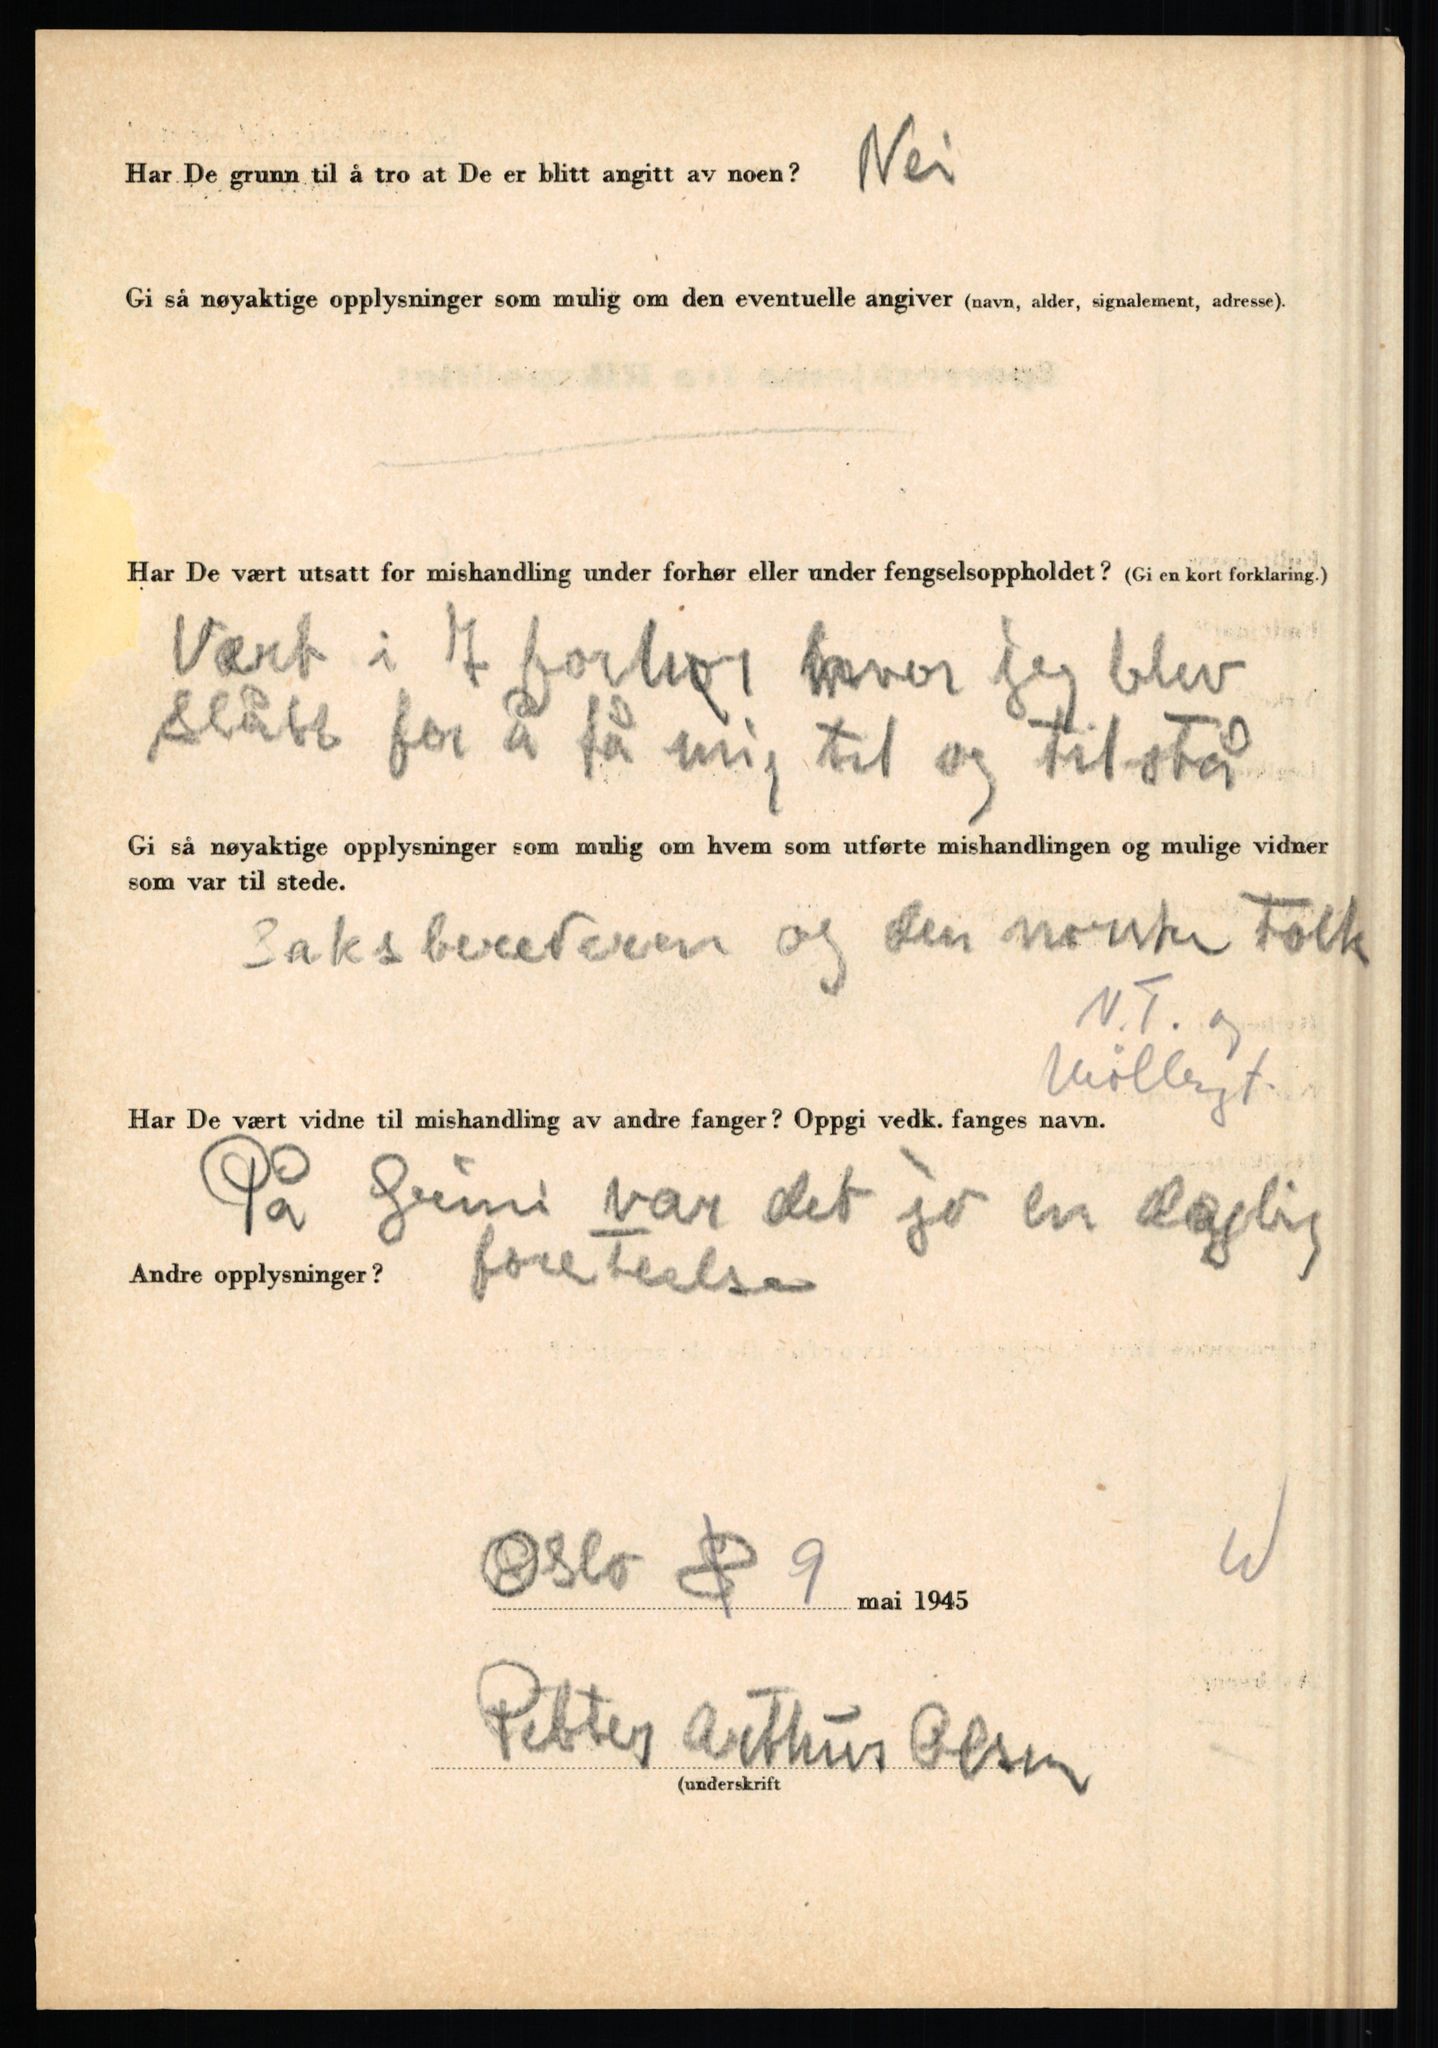 Har De grunn til å tro at De er blitt angitt av noen? Nei
Gi så nøyaktige opplysninger som mulig om den eventuelle angiver (navn, alder, signalement, adresse).
Har De vært utsatt for mishandling under forhør eller under fengselsoppholdet? (Gi en kort forklaring.)
Vært i 7 forhør hvor jeg blev
slått for å få mig til og tilstå
Gi så nøyaktige opplysninger som mulig om hvem som utførte mishandlingen og mulige vidner
som var til stede.
Saksberederen og den norske Tolk
N.T. og
Møllergt.
Har De vært vidne til mishandling av andre fanger? Oppgi vedk. fanges navn.
På Grini var det jo en daglig
foreteelse
Andre opplysninger?
Oslo 9 mai 1945
W
Petter Arthur Olsen
(underskrift